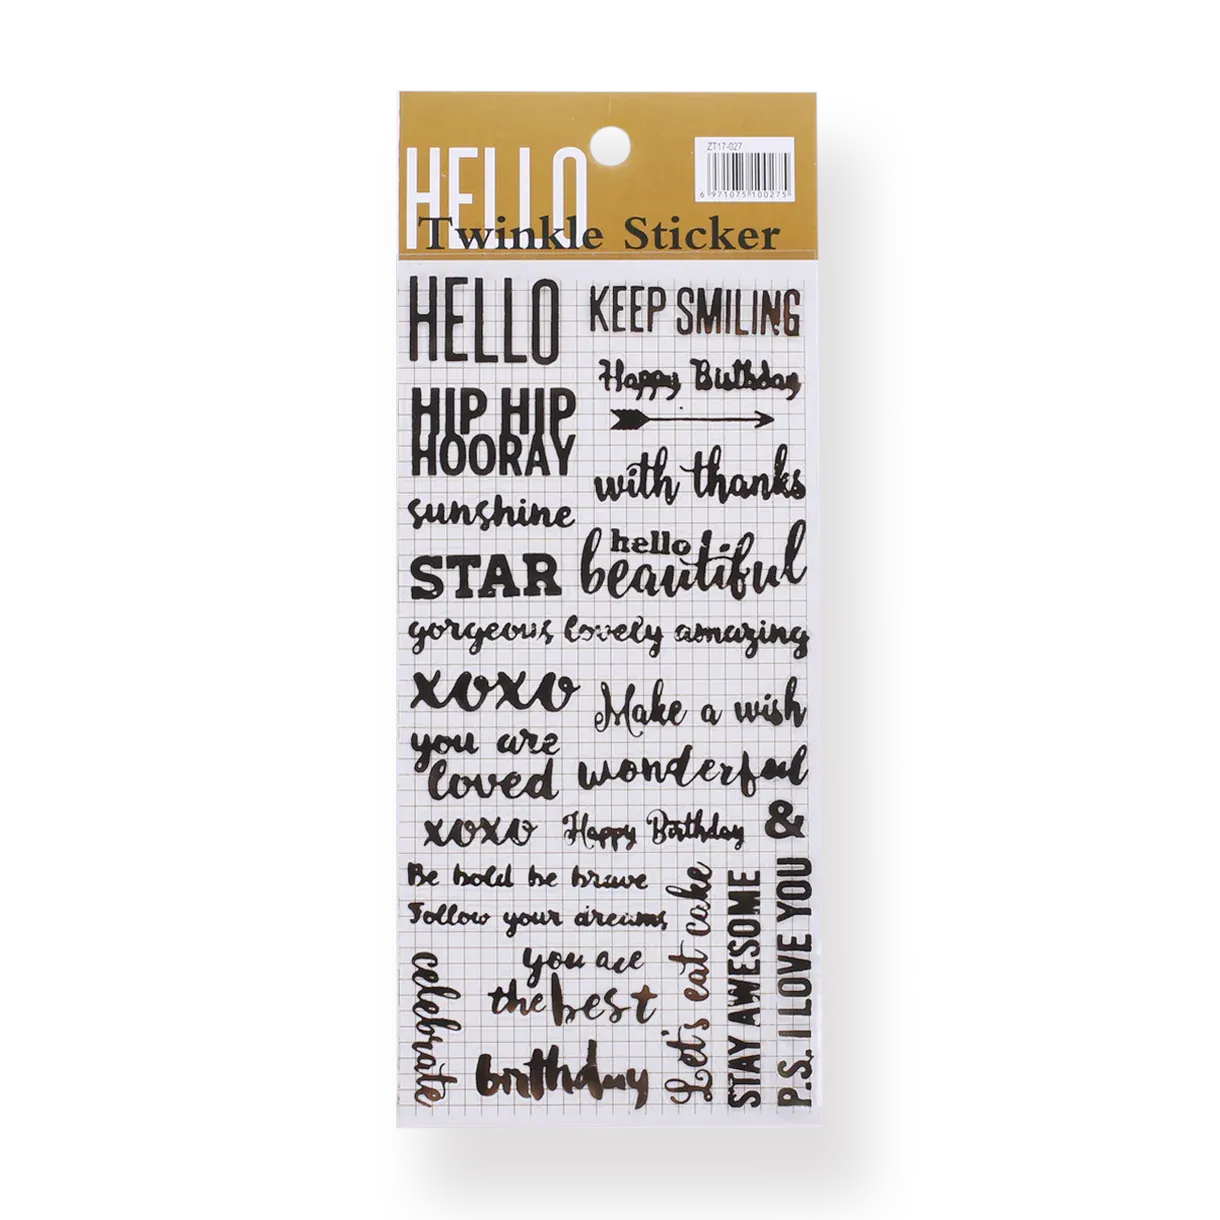 HELLO
Twinkle Sticker
ZT17-027
6 971075 100275
HELLO
KEEP SMILING
Happy Birthday
HIP HIP
HOORAY
with thanks
sunshine
hello
beautiful
STAR
gorgeous lovely amazing
xoxo
Make a wish
you are
loved
wonderful
&
xoxo
Happy Birthday
Be bold be brave
Follow your dreams
Let's eat cake
STAY AWESOME
P.S. I LOVE YOU
celebrate
you are
the best
birthday